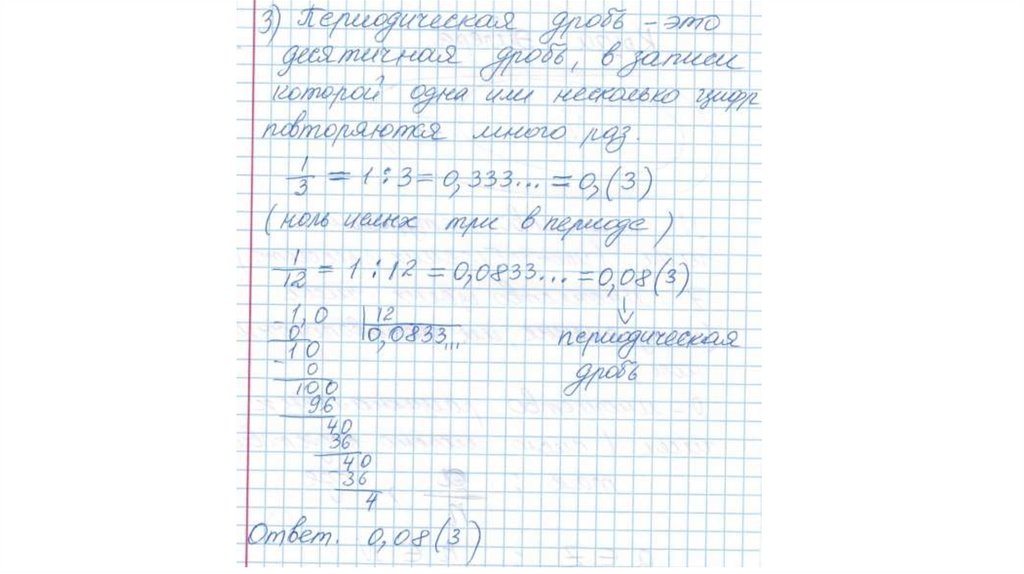 3) Периодическая дробь - это
десятичная дробь, в записи
которой одна или несколько цифр
повторяются много раз.
1/3 = 1 : 3 = 0,333... = 0,(3)
(ноль целых три в периоде)
1/12 = 1 : 12 = 0,0833... = 0,08(3)
1,0 12
0 0,0833... периодическая
10 дробь
0
100
96
40
36
40
36
4
Ответ. 0,08(3)